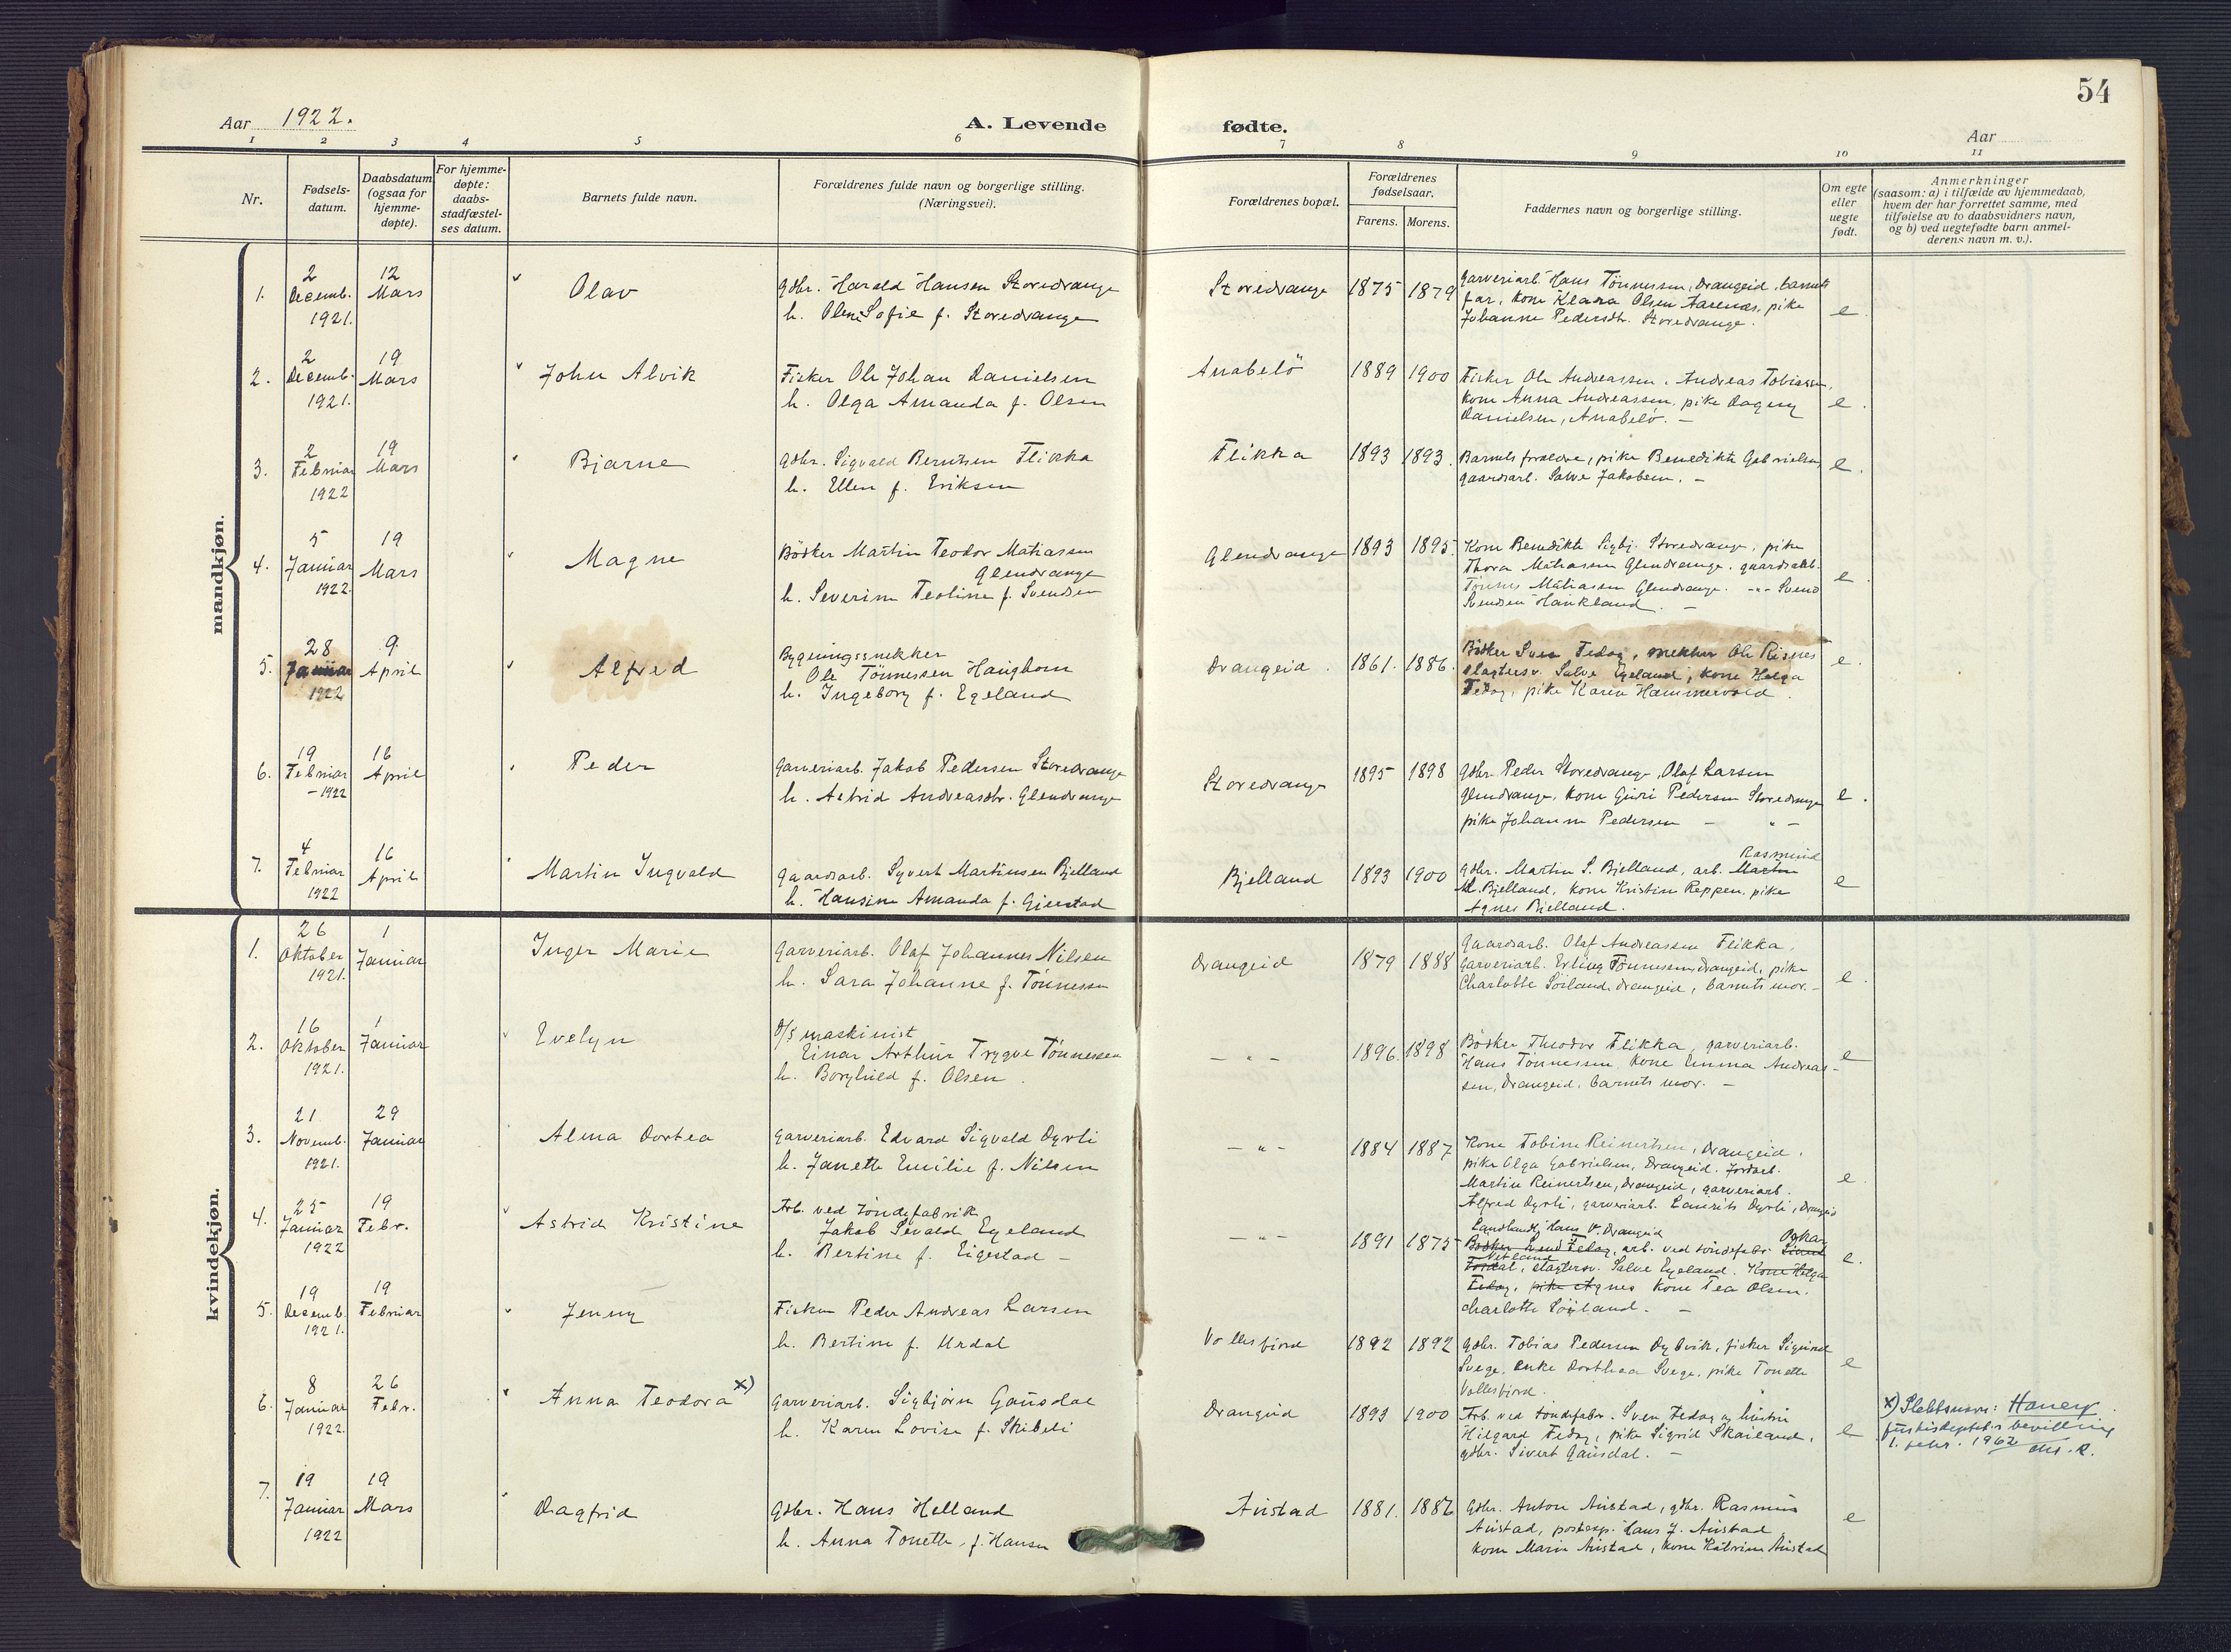 54
Aar 1922.
A. Levende fødte.
Aar
1 2 3 4 5 6 7 8 9 10 11
Nr.
Fødsels-
datum.
Daabsdatum
(ogsaa for
hjemme-
døpte).
For hjemme-
døpte:
daabs-
stadfæstel-
ses datum.
Barnets fulde navn.
Forældrenes fulde navn og borgerlige stilling.
(Næringsvei).
Forældrenes bopæl.
Forældrenes
fødselsaar.
Farens. Morens.
Faddernes navn og borgerlige stilling.
Om egte
eller
uegte
født.
Anmerkninger
(saasom: a) i tilfælde av hjemmedaab,
hvem der har forrettet samme, med
tilføielse av to daabsvidners navn,
og b) ved uegtefødte barn anmel-
derens navn m. v.).
mandkjøn.
1.
2
Decemb.
1921.
12
Mars
Olav
Gdbr. Harald Hansen Storedrange
h. Oline Sofie f. Storedrange
Storedrange
1875 1879
Garveriarb. Hans Tönnessen, Drangeid, barnets
far, kone Klara Olsen Aarenæs, pike
Johanne Pedersdtr. Storedrange.
e.
2.
2
Decemb.
1921.
19
Mars
John Alvik
Fisker Ole Johan Danielsen
h. Olga Amanda f. Olsen
Anabelö
1889 1900
Fisker Ole Andreassen, Andreas Tobiassen,
kone Anna Andreassen, pike Dagny
Danielsen, Anabelö. –
e.
3.
2
Februar
1922
19
Mars
Bjarne
Gdbr. Sigvald Berntsen Flikka
h. Ellen f. Eriksen
Flikka
1893 1893.
Barnets forældre, pike Benedikte Gabrielsen,
gaardsarb. Salve Jakobsen. –
e.
4.
5
Januar
1922.
19
Mars
Magne
Bödker Martin Teodor Matiassen
Glendrange
h. Severine Teoline f. Svendsen
Glendrange
1893 1895.
Kone Benedikte Sigbj. Storedrange, pike
Thora Matiassen Glendrange, gaardsarb.
Tönnes Matiasen Glendrange. -"- Svend
Svendsen Haukland. –
e.
5.
28
Januar
1922
9
April
Alfred
Bygningssnekker
Ole Tönnessen Haughom
h. Ingeborg f. Egeland
Drangeid.
1861. 1886.
Bödker Sven Fedog, snekker Ole Risnes
slagtersv. Salve Egeland, kone Helga
Fedog, pike Karen Hammervold.
e.
6.
19
Februar
– 1922
16
April
Peder
Garveriarb. Jakob Pedersen Storedrange
h. Astrid Andreasdtr. Glendrange
Storedrange
1895 1898
Gdbr. Peder Storedrange, Olaf Larsen
Glendrange, kone Guri Pedersen Storedrange
pike Johanne Pedersen – " –
e.
7.
4
Februar
1922
16
April
Martin Ingvald
Gaardsarb. Syvert Martinsen Bjelland
h. Hansine Amanda f. Gjerstad
Bjelland
1893 1900
Rasmund
Gdbr. Martin S. Bjelland, arb. Martin
M. Bjelland, kone Kristine Reppen, pike
Agnes Bjelland.
e
kvindekjøn.
1.
26
Oktober
1921.
1
Januar
Inger Marie
Garveriarb. Olaf Johannes Nilsen
h. Sara Johanne f. Tönnessen
Drangeid
1879 1888
Gaardsarb. Olaf Andreassen Flikka,
Garveriarb. Erling Tönnessen, Drangeid, pike
Charlotte Sörland, Drangeid, barnets mor. –
e.
2.
16
Oktober
1921.
1
Januar
Evelyn
D/S maskinist
Einar Arthur Trygve Tönnessen
h. Borghild f. Olsen.
– " –
1896. 1898
Bödker Theodor Flikka, garveriarb.
Hans Tönnessen, kone Emma Andreas-
sen, Drangeid, barnets mor. –
e
3.
21
Novemb.
1921.
29
Januar
Alma Dortea
Garveriarb. Edvard Sigvald Dyrli
h. Janette Emilie f. Nilsen
– " –
1884 1887
Kone Tobine Reinertsen, Drangeid,
pike Olga Gabrielsen, Drangeid. Jordarb.
Martin Reinertsen, Drangeid, garveriarb.
Alfred Dyrli, garveriarb. Laurits Dyrli, Drangeid
e.
4.
25
Januar
1922
19
Febr.
Astrid Kristine
Arb. ved töndefabrik
Jakob Sevald Egeland
h. Bertine f. Eigestad –
– " –
1891 1875
Landhandl. Hans V. Drangeid Oskar
Bödker Svend Fedog, arb. ved töndefabr.
Netland
slagtersv. Salve Egeland. Kone Helga
Fedog, pike Agnes kone Tea Olsen.
Charlotte Söyland. –
e.
5.
19
Decemb.
1921.
19
Februar
Jenny
Fisker Peder Andreas Larsen
h. Bertine f. Urdal
Vollesfjord
1892 1892
Gdbr. Tobias Pedersen Dybvik, fisker Sigurd
Svege, enke Dorthea Svege, pike Tonette
Vollesfjord.
e
6.
8
Januar
1922.
26
Febr.
Anna Teodora x)
Garveriarb. Sigbjörn Gausdal
h. Karen Lovise f. Skibeli
Drangeid
1893 1900
Arb. ved töndefabr. Sven Fedog og hustru
Hilgard Fedog, pike Sigrid Skailand,
gdbr. Sivert Gausdal. –
e
x) Slektsnavn:
bevilling
1. febr. 1962
7.
19
Januar
1922
19
Mars
Dagfrid
Gdbr. Hans Helland
h. Anna Tonette, f. Hansen
Austad
1881. 1886
Gdbr. Anton Austad, gdbr. Rasmus
Austad, postexp. Hans J. Austad,
kone Marie Austad, kone Katrine Austad
e